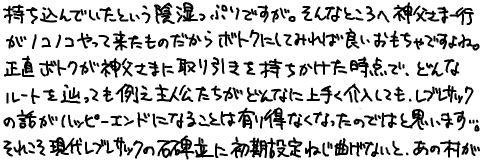 持ち込んでいたという陰湿っぷりですが。そんなところへ神父さま一行
がノコノコやって来たものだからボトクにしてみれば良いおもちゃですよね。
正直ボトクが神父さまに取り引きを持ちかけた時点で、どんな
ルートを辿っても例え主人公たちがどんなに上手く介入しても、レブレサック
の話がハッピーエンドになることは有り得なくなったのではと思います…。
それこそ現代レブレサックの石碑並に初期設定ねじ曲げないと、あの村が